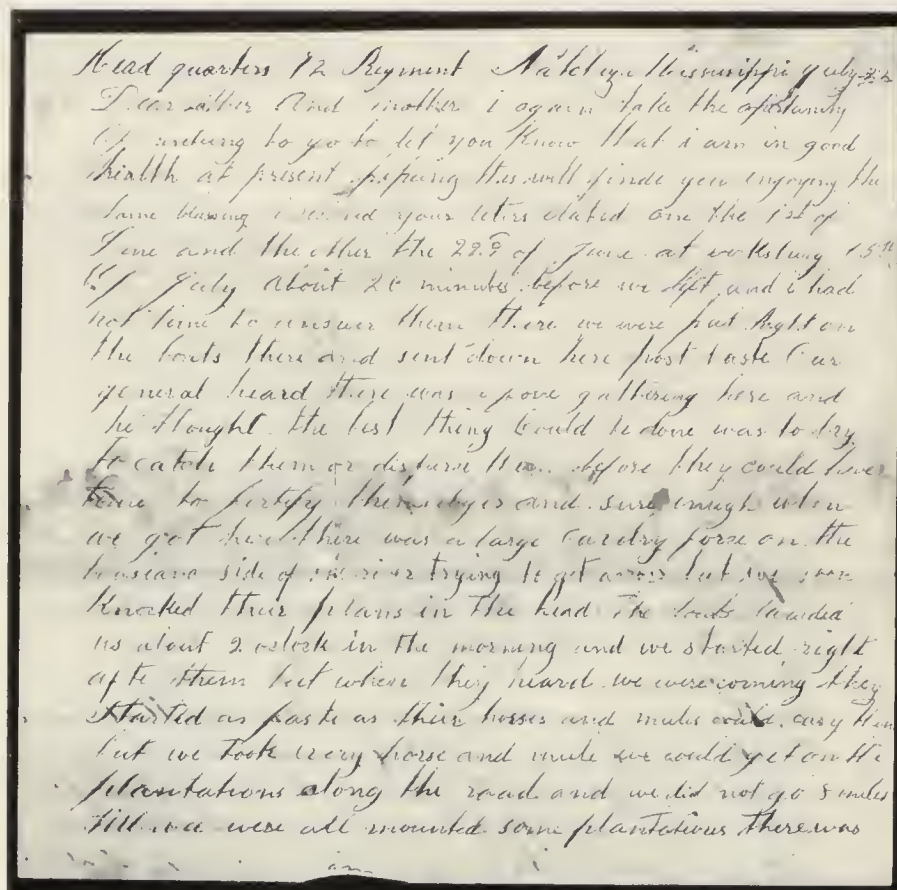 Head quarters 72 Regment Natchez Missusippi July
Dear father and mother i again take the opertunity
of writing to yo to let you know that i am in good
health at present hopeing this will finde you enjoying the
same blessing i recved your leters dated one the 1st of
June and the other the 28th of June at vicksburg 15th
of July about 20 minutes before we left and i had
not time to answer them there we were put right on
the boats there and sent down here post haste Our
general heard there was a force gathering here and
he thought the best thing could be done was to try
to catch them or disperse them before they could have
time to fortify themselves and sure enough when
we got here there was a large cavelry forse on the
side of the river trying to get across but we soon
knocked their plans in the head the boats landed
us about 2 oclock in the morning and we started right
afte them but when they heard we were coming they
started as faste as their horses and mules could cary them
but we took every horse and mule we could get on the
plantations along the road and we did not go 5 miles
till we were all mounted some plantations there was